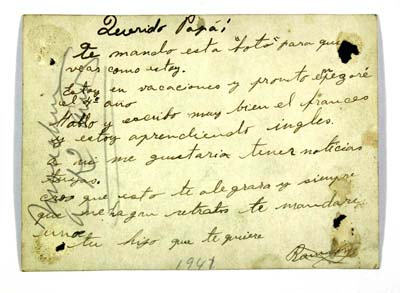 Querido Papá!
Te mando esta "foto" para que
veas como estoy.
Estoy en vacaciones y pronto empezaré
el 4º año
Hablo y escribo muy bien el frances
y estoy aprendiendo ingles.
a mi me gustaria tener noticias
tuyas.
creo que esto te alegrara y siempre
que me hagan retratos te mandaré
uno
tu hijo que te quiere
1941